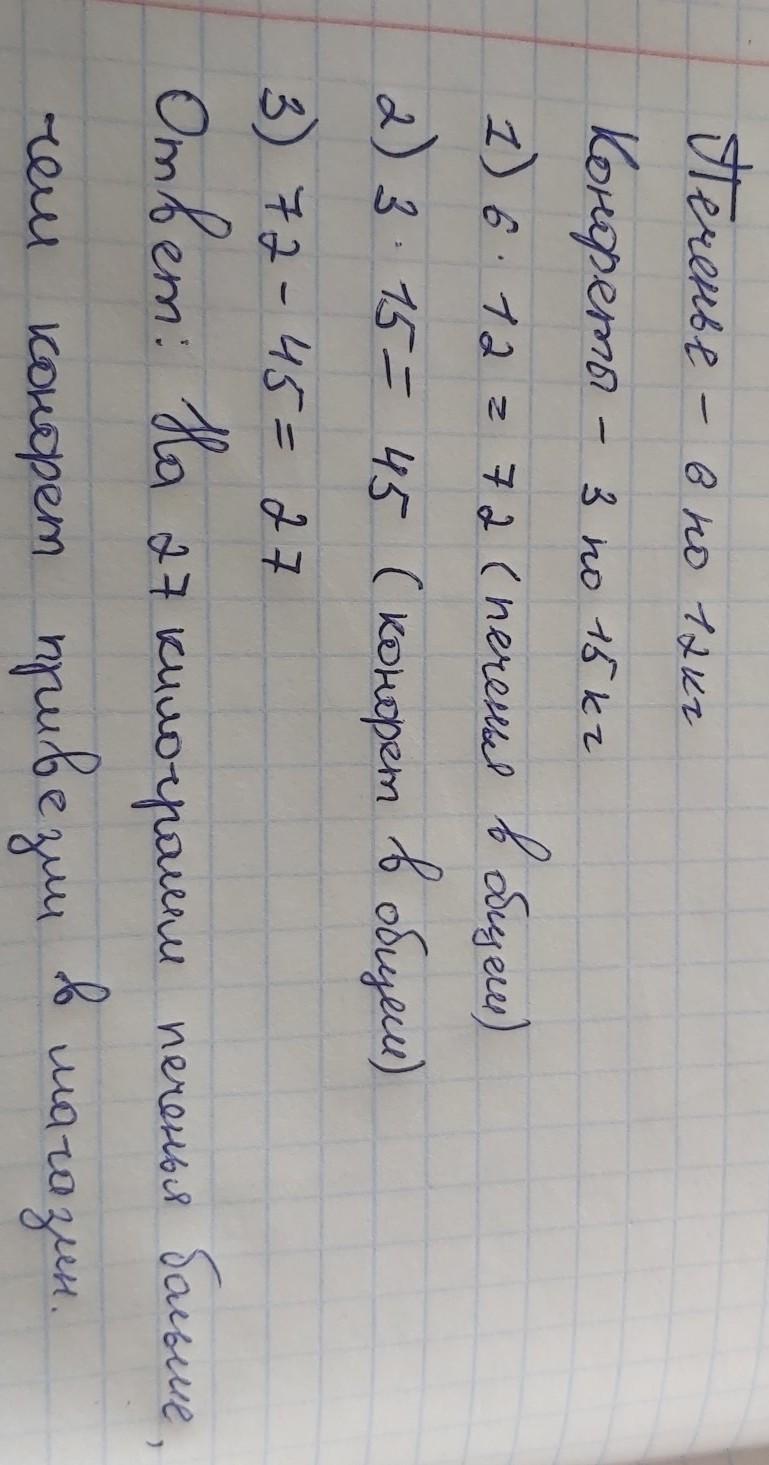 Печенье - 6 по 12кг
Конфеты - 3 по 15кг
1) 6 · 12 = 72 (печенья в общем)
2) 3 · 15 = 45 (конфет в общем)
3) 72 - 45 = 27
Ответ: На 27 килограмм печенья больше,
чем конфет привезли в магазин.